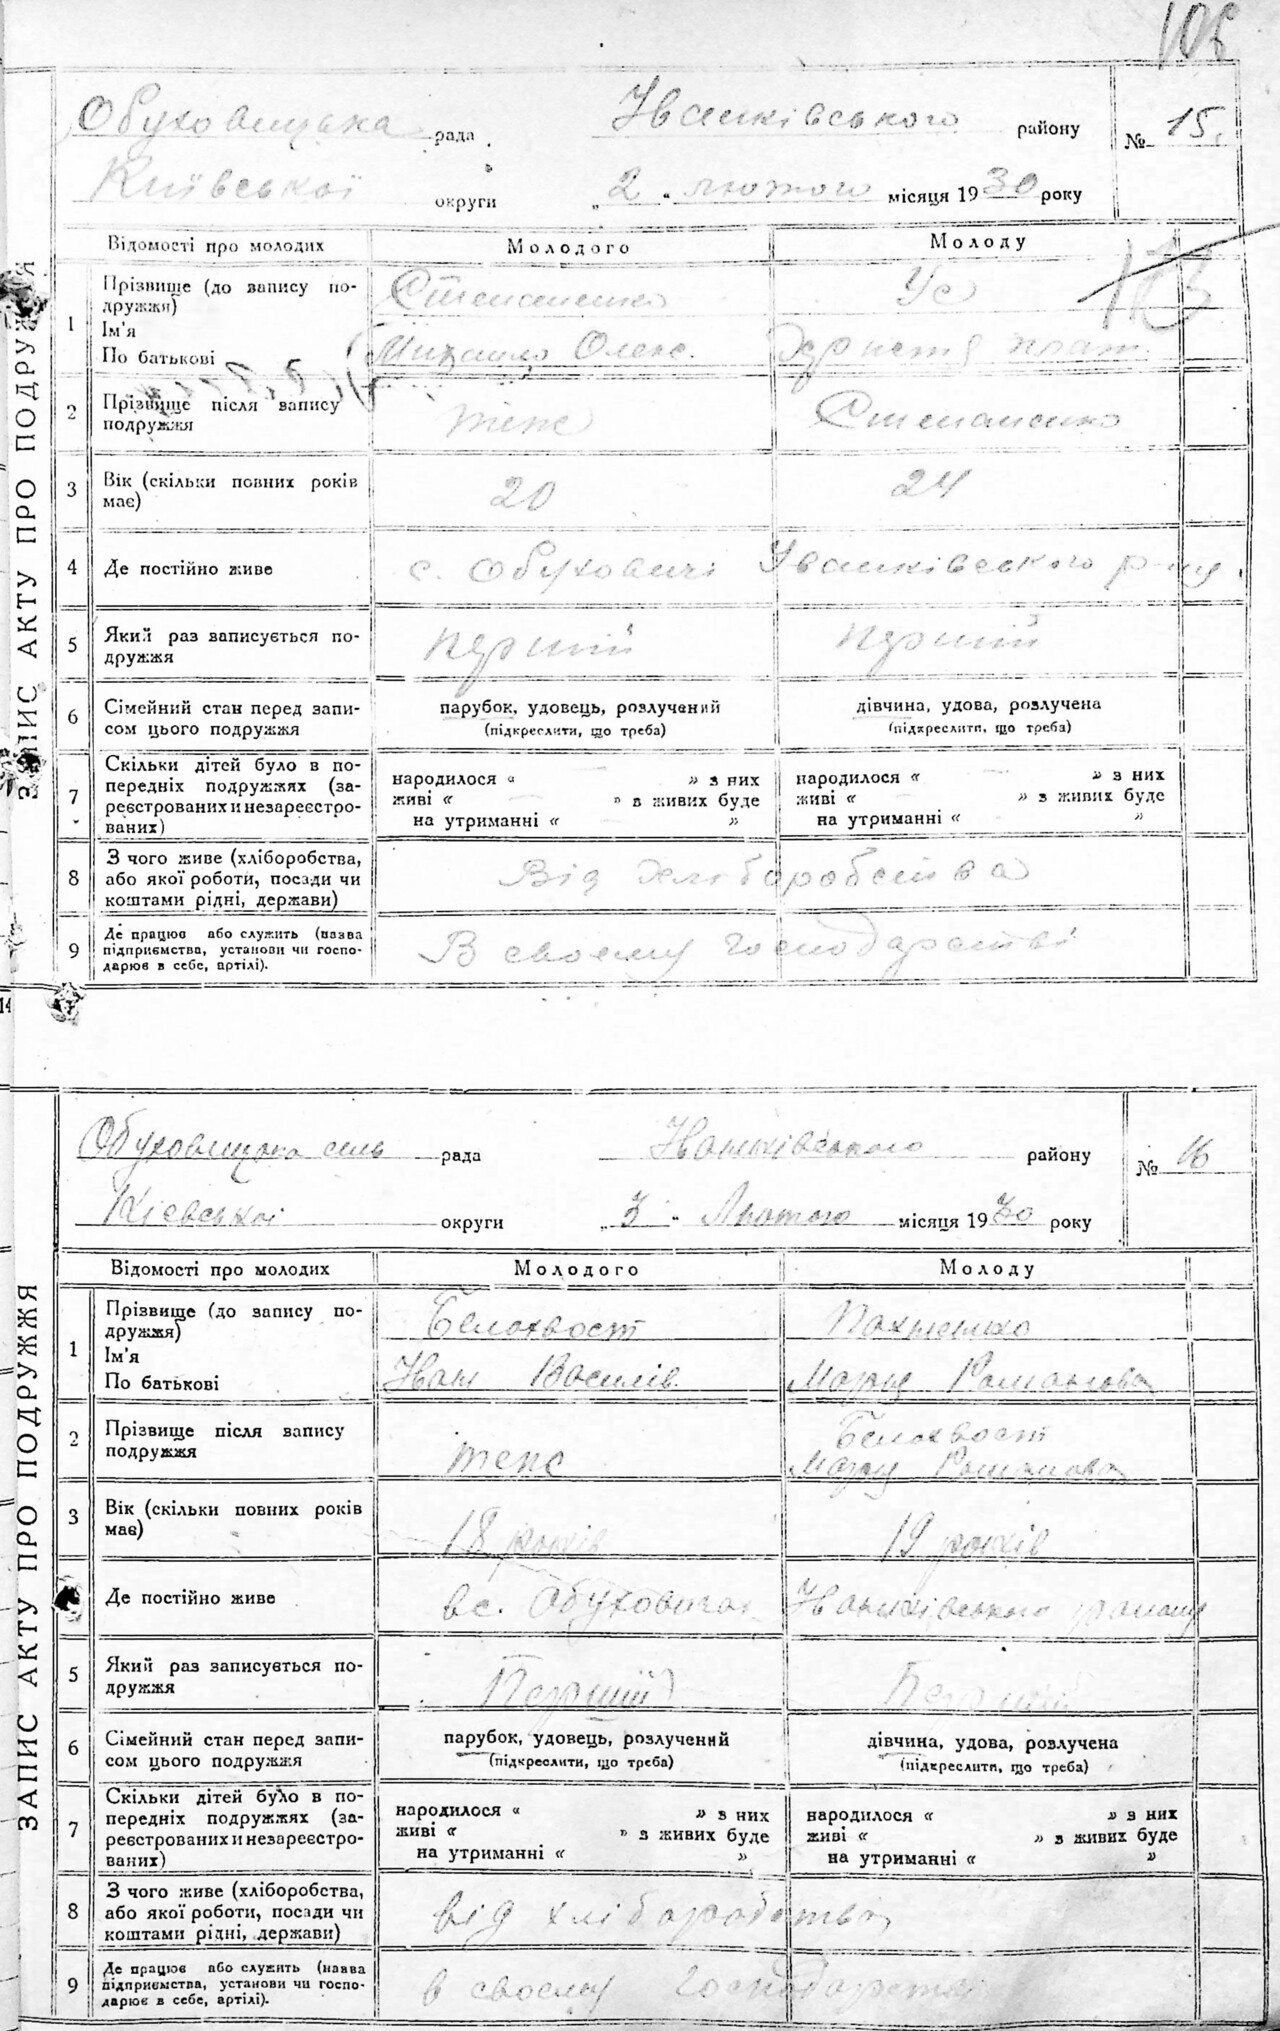 105
Обуховицька рада Іванківського району № 15.
Київської округи „ 2 “ лютого місяця 1930 року
ЗАПИС АКТУ ПРО ПОДРУЖЖЯ
Відомості про молодих Молодого Молоду
1 Прізвище (до запису по-
дружжя) Степаненко Ус
Ім'я
По батькові Михайло Олекс. Христя
2 Прізвище після запису
подружжя теж Степаненко
3 Вік (скільки повних років
має) 20 24
4 Де постійно живе с. Обуховичі Іванківського р-ну.
5 Який раз записується по-
дружжя перший перший
6 Сімейний стан перед запи-
сом цього подружжя парубок, удовець, розлучений дівчина, удова, розлучена
(підкреслити, що треба) (підкреслити, що треба)
7 Скільки дітей було в по-
передніх подружжях (за-
реєстрованих и незареєстро-
ваних) народилося “ » з них народилося “ » з них
живі “ » в живих буде живі “ » з живих буде
на утриманні “ » на утриманні “ »
8 З чого живе (хліборобства,
або якої роботи, посади чи
коштами рідні, держави) Від хліборобства
9 Де працює або служить (назва
підприємства, установи чи госпо-
дарює в себе, артілі). В своєму господарстві
14
Обуховицька сель рада Іванківського району № 16
Кієвської округи „ 3 “ Лютого місяця 1930 року
ЗАПИС АКТУ ПРО ПОДРУЖЖЯ
Відомості про молодих Молодого Молоду
1 Прізвище (до запису по-
дружжя) Белохвост Пахненко
Ім'я
По батькові Іван Василів Марія Романова
2 Прізвище після запису
подружжя теж Белохвост
Марія Романова
3 Вік (скільки повних років
має) 18 років 19 років
Де постійно живе в с. Обуховичах Іванківського району
5 Який раз записується по-
дружжя Перший Перший
6 Сімейний стан перед запи-
сом цього подружжя парубок, удовець, розлучений дівчина, удова, розлучена
(підкреслити, що треба) (підкреслити, що треба)
7 Скільки дітей було в по-
передніх подружжях (за-
реєстрованих и незареєстро-
ваних) народилося “ » з них народилося “ » з них
живі “ » з живих буде живі “ » з живих буде
на утриманні “ » на утриманні “ »
8 З чого живе (хліборобства,
або якої роботи, посади чи
коштами рідні, держави) від хліборобства
9 Де працює або служить (назва
підприємства, установи чи госпо-
дарює в себе, артілі). в своєму господарстві